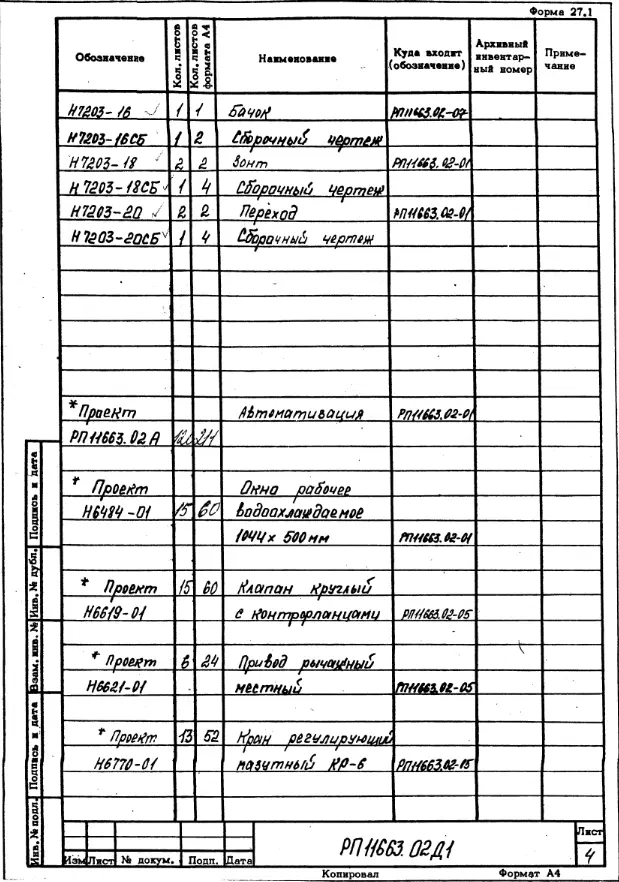 Форма 27.1
Обозначение Кол. листов Кол. листов формата А4 Наименование Куда входит (обозначение) Архивный инвентарный номер Примечание
Н7203-16 1 1 Бачок РП11663.02-07
Н7203-16СБ 1 2 Сборочный чертеж
Н7203-18 2 2 Зонт РП11663.02-01
Н7203-18СБ 1 4 Сборочный чертеж
Н7203-20 2 2 Переход РП11663.02-01
Н7203-20СБ 1 4 Сборочный чертеж
*Проект Автоматизация РП11663.02-01
РП11663.02А
* Проект Окно рабочее
Н6484-01 15 60 водоохлаждаемое
1044 х 500мм РП11663.02-01
* Проект 15 60 Клапан круглый
Н6619-01 с контрфланцами РП11663.02-05
* Проект 6 24 Привод рычажный
Н6621-01 местный РП11663.02-05
* Проект 13 52 Кран регулирующий
Н6770-01 мазутный КР-6 РП11663.02-15
Инв. № подл. Подпись и дата Взам. инв. № Инв. № дубл. Подпись и дата
РП11663.02Д1
Лист
4
Изм Лист № докум. Подп. Дата
Копировал Формат А4